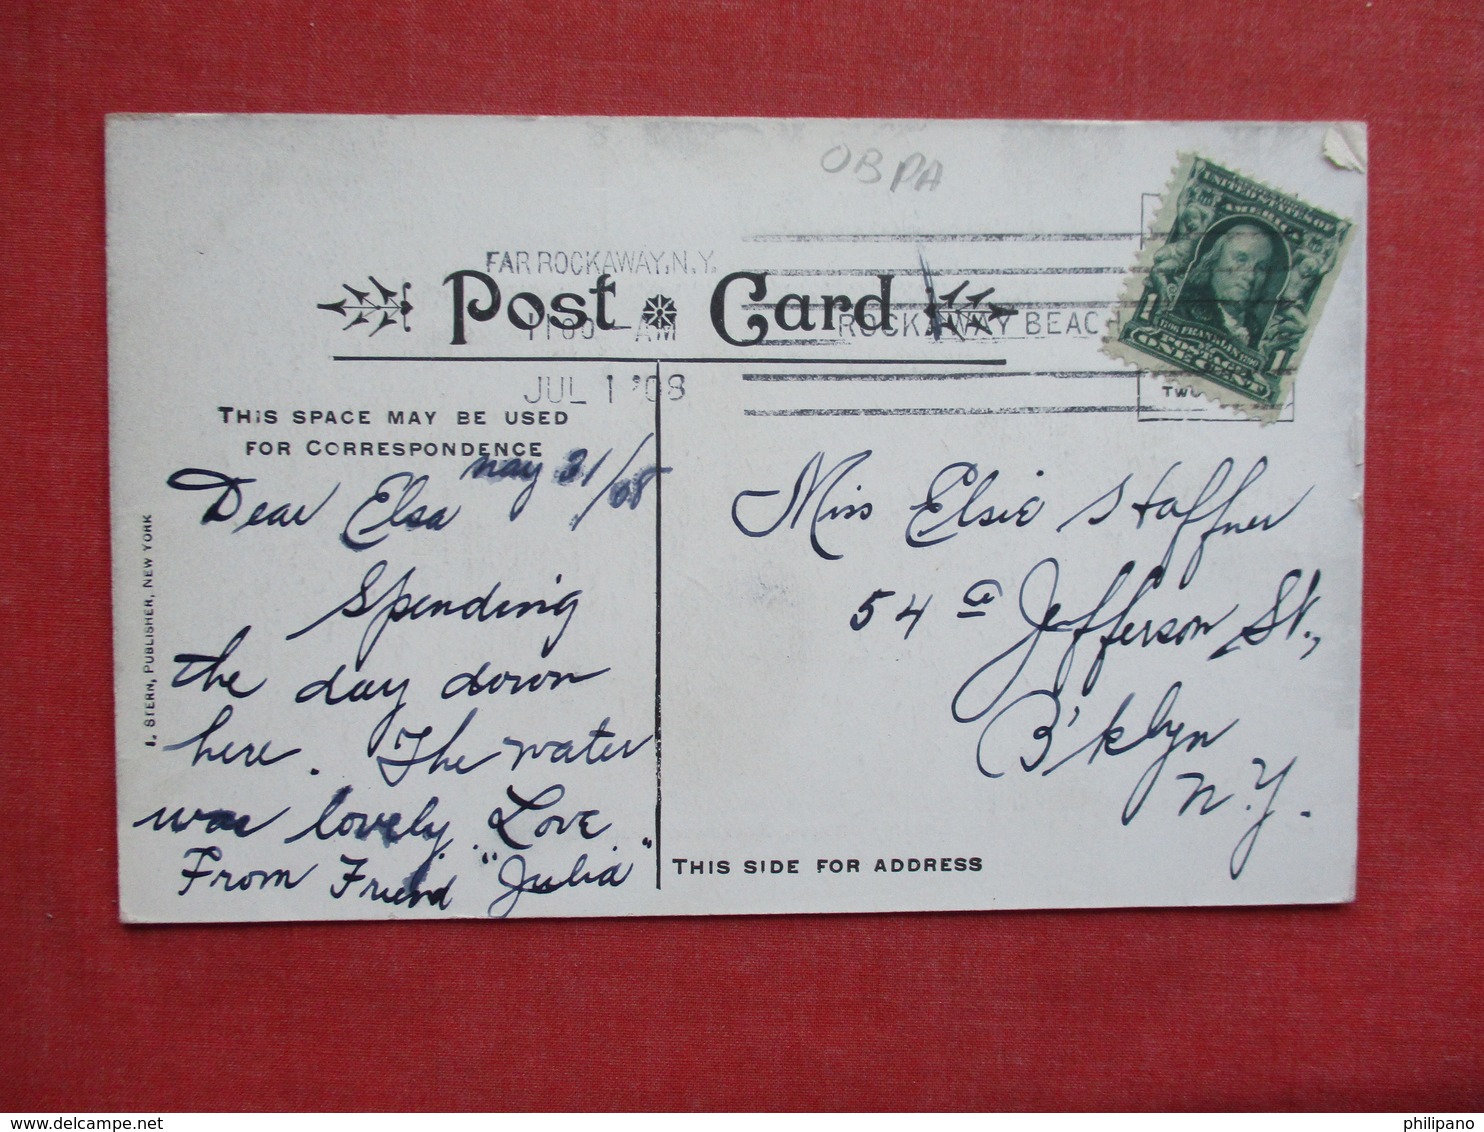 OB PA
FAR ROCKAWAY, N.Y.
Post Card
AM
ROCKAWAY BEACH
JUL 1 '08
TWO
UNITED STATES OF
AMERICA
1 FRANKLIN 1
ONE CENT
THIS SPACE MAY BE USED
FOR CORRESPONDENCE
May 31/08
Dear Elsa
Spending
the day down
here. The water
was lovely. Love
From Friend "Julia"
Miss Elsie Staffner
54 a Jefferson St.,
B'klyn
N.Y.
THIS SIDE FOR ADDRESS
I. STERN, PUBLISHER, NEW YORK
delcampe.net
philipano